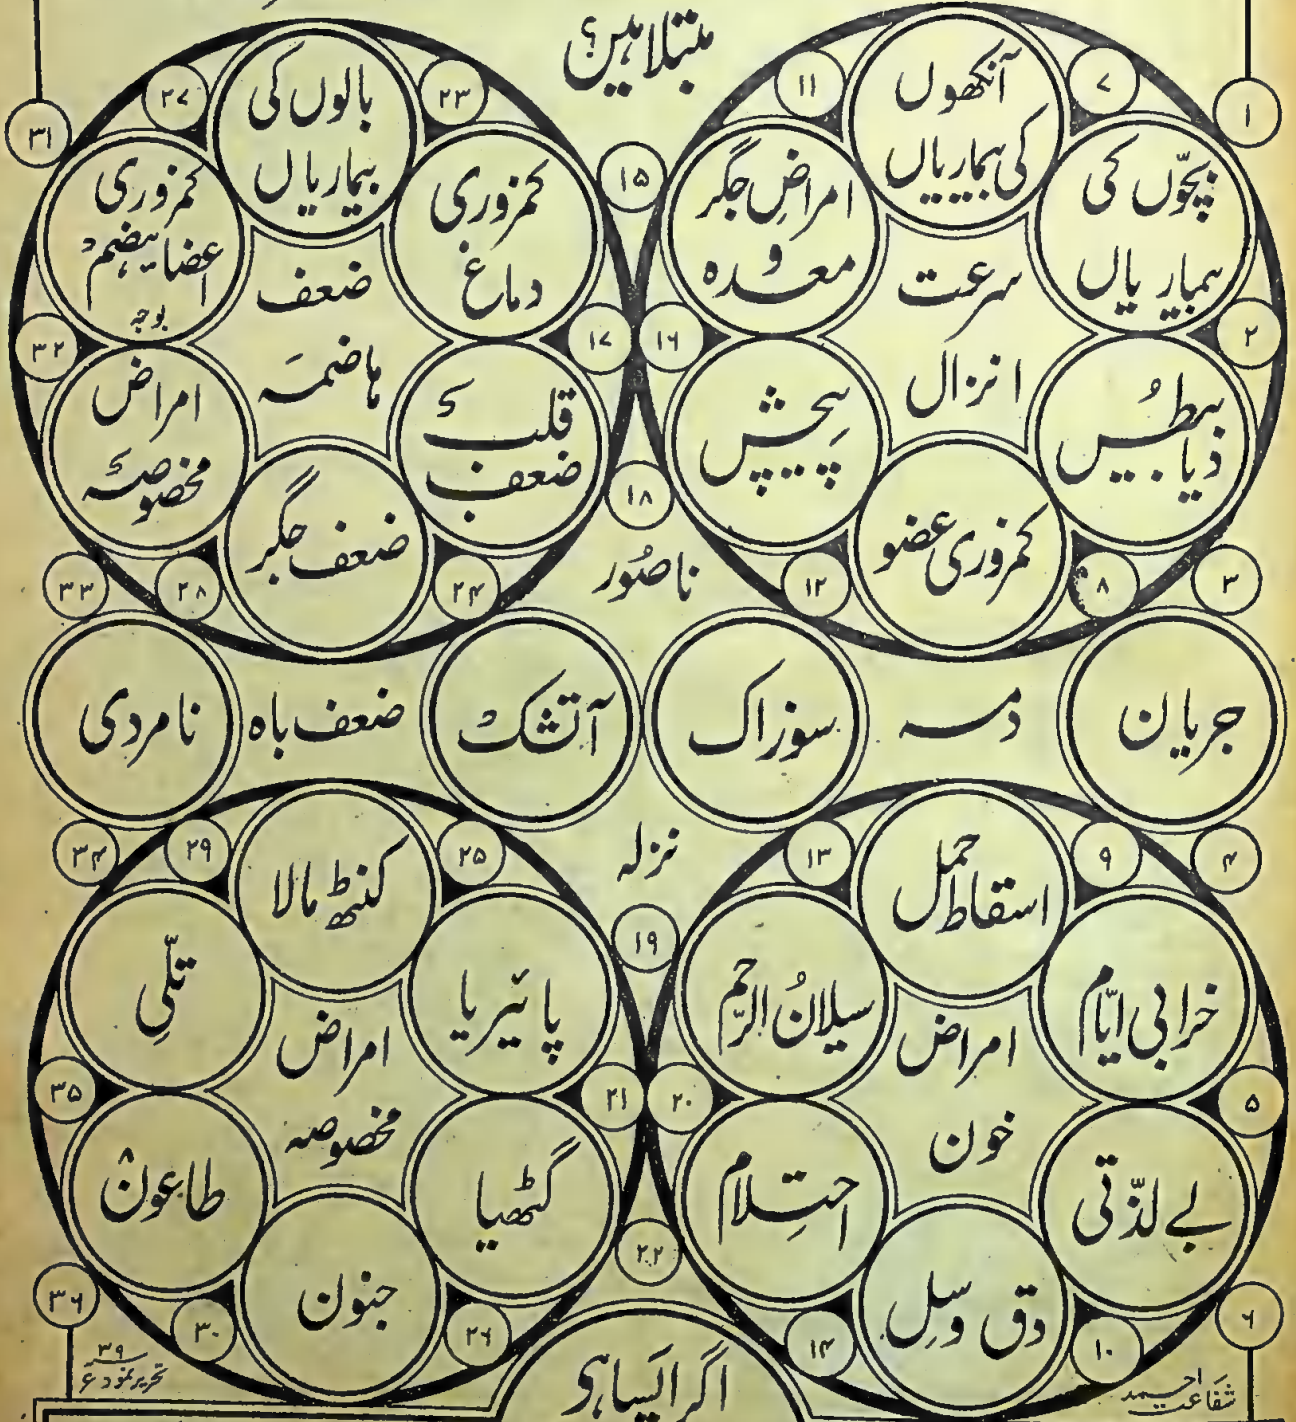 مبتلا ہیں؟
۱
۷
آنکھوں
کی بیماریاں
۱۱
بچّوں کی
بیماریاں
امراضِ جگر
و
معدہ
سرعت
انزال
۲
ذیابیطُس
پیچِش
۱۶
کمزوری عضو
۸
۱۲
۳
۱۵
۲۳
بالوں کی
بیماریاں
۲۷
۳۱
کمزوری
دماغ
کمزوری
اعضایٔہضم
بوجہ
ضعف
ہاضمہ
۱۷
۳۲
قلب
ضعف
امراض
مخصوصہ
ضعف جگر
۱۸
۲۴
۲۸
۳۳
ناصُور
جریان
دمہ
سوزاک
آتشک
ضعف باہ
نامردی
نزلہ
۴
۹
اسقاط حمل
۱۳
خرابی ایّام
سیلانُ الرّحم
امراض
خون
۵
بے لذّتی
احتِلام
۲۰
دق وسِل
۶
۱۰
۱۴
۱۹
۲۵
کنٹھ مالا
۲۹
۳۴
پائیریا
تلّی
امراض
مخصوصہ
۲۱
۳۵
گٹھیا
طاعون
جنون
۲۲
۲۶
۳۰
۳۶
شفاعت احمد
۳۹
اگر ایسا ہی